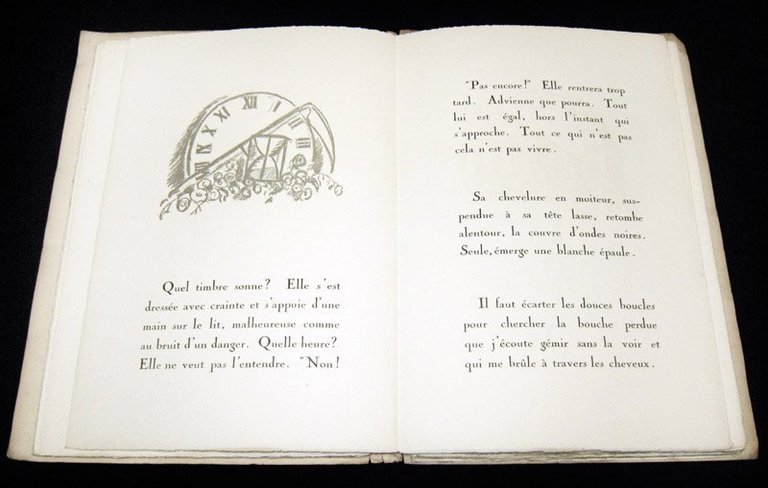 IX X XI XII I III
Quel timbre sonne? Elle s'est
dressée avec crainte et s'appuie d'une
main sur le lit, malheureuse comme
au bruit d'un danger. Quelle heure?
Elle ne veut pas l'entendre. "Non!
"Pas encore!" Elle rentrera trop
tard. Advienne que pourra. Tout
lui est égal, hors l'instant qui
s'approche. Tout ce qui n'est pas
cela n'est pas vivre.
Sa chevelure en moiteur, sus-
pendue à sa tête lasse, retombe
alentour, la couvre d'ondes noires.
Seule, émerge une blanche épaule.
Il faut écarter les douces boucles
pour chercher la bouche perdue
que j'écoute gémir sans la voir et
qui me brûle à travers les cheveux.